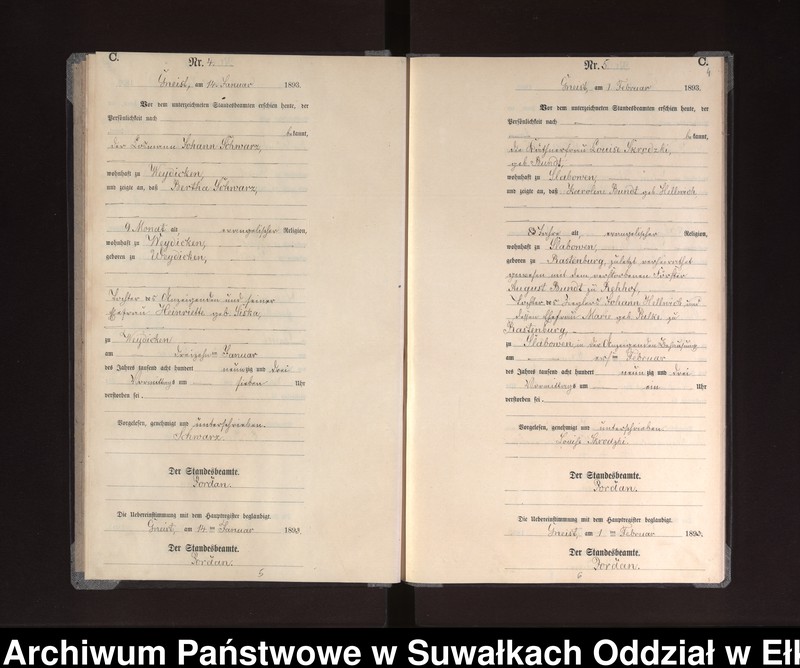 C.
Nr. 4.
Gneist, am 14. Januar 1893.
Vor dem unterzeichneten Standesbeamten erschien heute, der
Persönlichkeit nach
bekannt,
der Losmann Johann Schwarz,
wohnhaft zu Weydicken,
und zeigte an, daß Bertha Schwarz,
9 Monat alt evangelischer Religion,
wohnhaft zu Weydicken,
geboren zu Weydicken,
Tochter des Anzeigenden und seiner
Ehefrau Henriette geb.
zu Weydicken
am dreizehnten Januar
des Jahres tausend acht hundert neunzig und drei
Vormittags um sieben Uhr
verstorben sei.
Vorgelesen, genehmigt und unterschrieben.
Schwarz
Der Standesbeamte.
Jordan.
Die Uebereinstimmung mit dem Hauptregister beglaubigt.
Gneist, am 14ten Januar 1893.
Der Standesbeamte.
Jordan.
5
C.
4
Nr. 5
Gneist, am 1 Februar 1893.
Vor dem unterzeichneten Standesbeamten erschien heute, der
Persönlichkeit nach
bekannt,
die Käthnerfrau Louise Skrodzki,
geb. Bundt,
wohnhaft zu Slabowen,
und zeigte an, daß Karoline Bundt geb. Hellwich
83 Jahre alt, evangelischer Religion,
wohnhaft zu Slabowen,
geboren zu Rastenburg, zuletzt verheirathet
gewesen mit dem verstorbenen Förster
August Bundt zu Rehhof,
Tochter des Johann Hellwich und
dessen Ehefrau Marie geb. zu
Rastenburg,
zu Slabowen in der Anzeigenden Behausung
am ersten Februar
des Jahres tausend acht hundert neunzig und drei
Vormittags um ein Uhr
verstorben sei.
Vorgelesen, genehmigt und unterschrieben.
Louise Skrodzki
Der Standesbeamte.
Jordan.
Die Uebereinstimmung mit dem Hauptregister beglaubigt.
Gneist, am 1ten Februar 1893.
Der Standesbeamte.
Jordan.
6
Archiwum Państwowe w Suwałkach Oddział w Eł